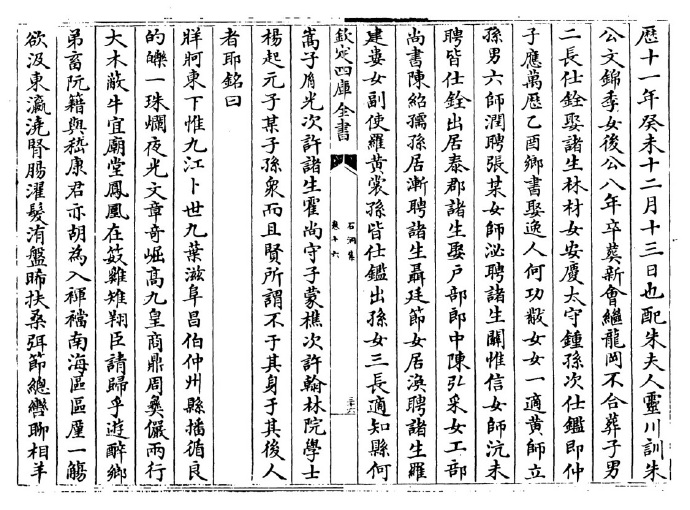 厯十一年癸未十二月十三日也配朱夫人靈川訓朱
公文錦季女後公八年卒葬新會繼龍岡不合葬子男
二長仕銓娶諸生林材女安慶太守鍾孫次仕鑑即仲
子應萬厯乙酉鄉書娶逸人何功敵女女一適黄師立
孫男六師潤聘張某女師泌聘諸生關惟信女師沆未
聘皆仕銓出居泰郡諸生娶户部郎中陳弘采女工部
尚書陳紹孺孫居漸聘諸生聶廷節女居渙聘諸生羅
建婁女副使羅黄裳孫皆仕鑑出孫女三長適知縣何
欽定四庫全書
石洞集
卷十六
三十六
嵩子胤光次許諸生霍尚守子蒙樵次許翰林院學士
楊起元子某子孫衆而且賢所謂不于其身于其後人
者耶銘曰
牂牁東下惟九江卜世九葉滋阜昌伯仲州縣播循良
的皪一珠爛夜光文章竒崛高九皇商鼎周彞儼兩行
大木蔽牛宜廟堂鳳凰在笯雞雉翔臣請歸乎遊醉鄉
弟畜阮籍與嵇康君亦胡為入褌襠南海區區厪一觴
欲汲東瀛澆腎腸濯髮洧盤晞扶桑弭節總轡聊相羊